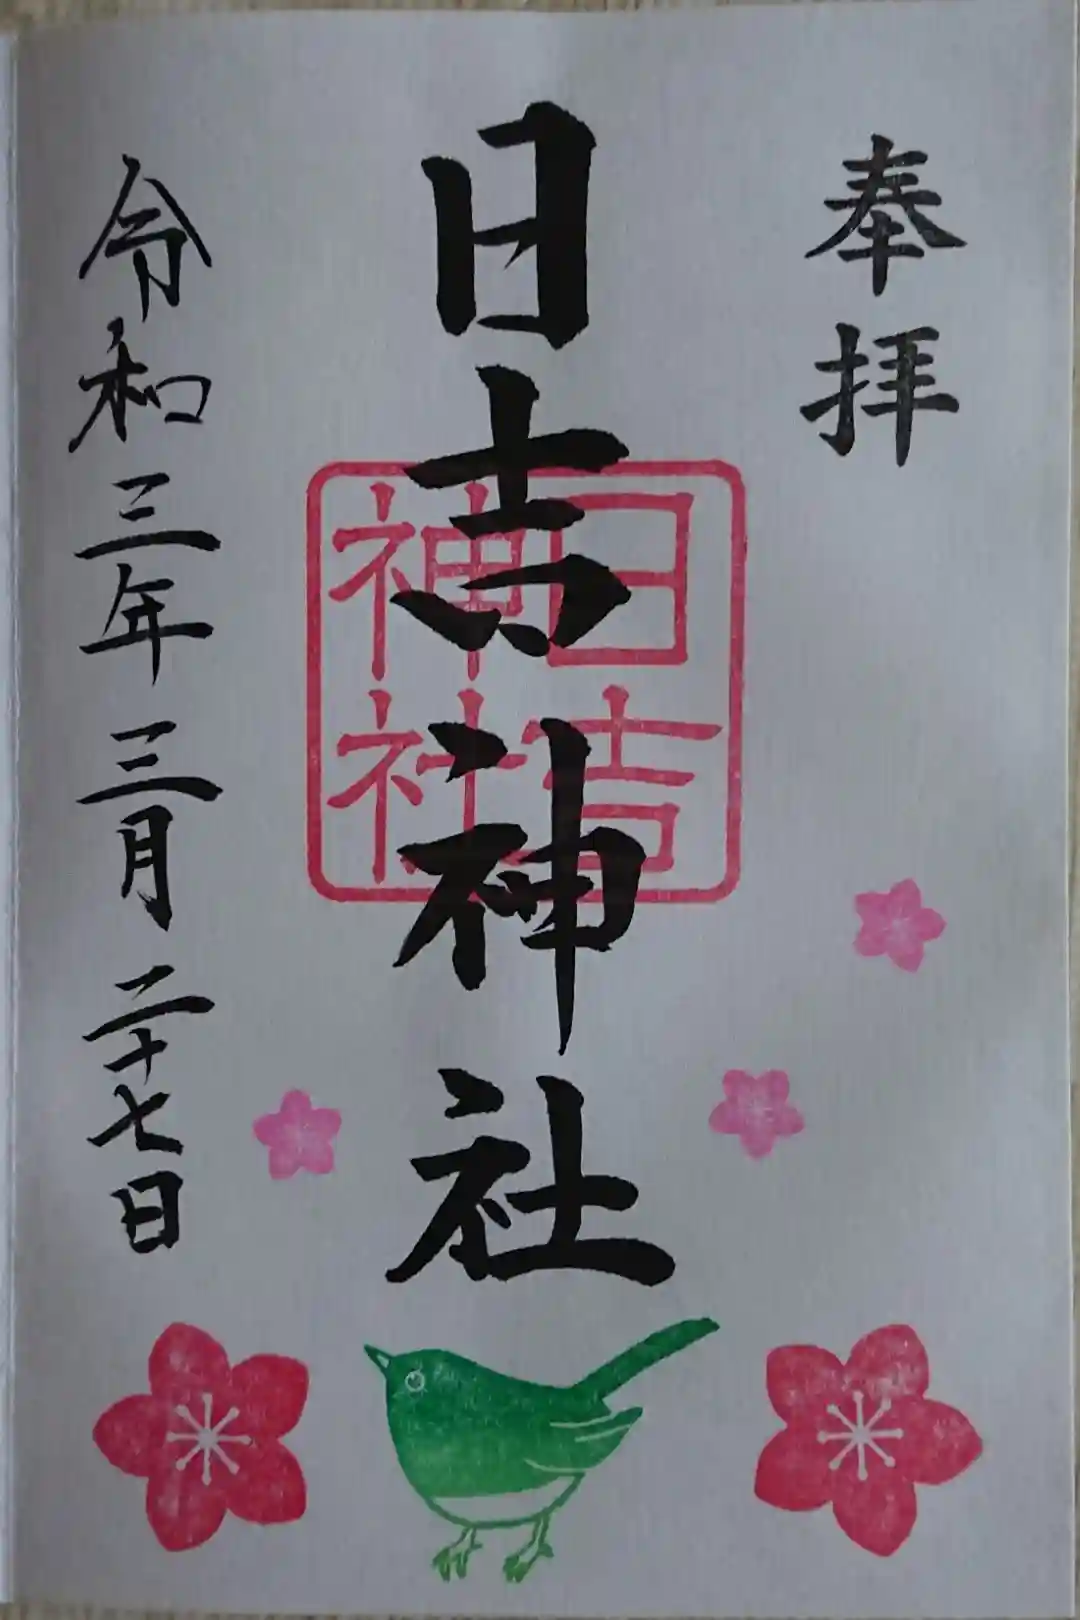 奉拝
日吉神社
日吉
神社
令和三年三月二十七日